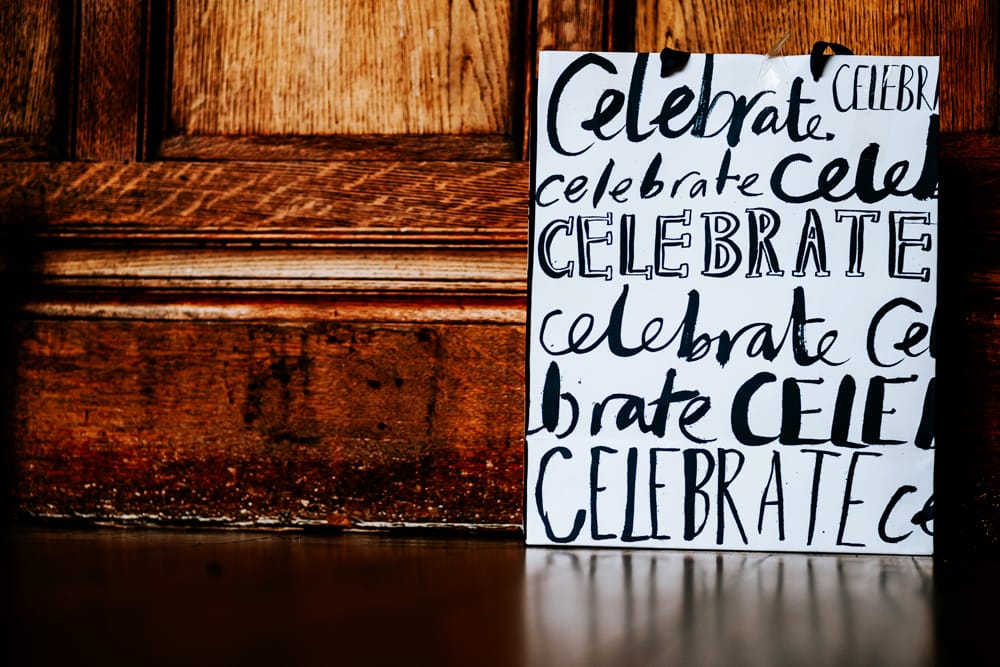 Celebrate. CELEBRA
celebrate Celeb
CELEBRATE
celebrate Ce
brate CELEB
CELEBRATE Ce